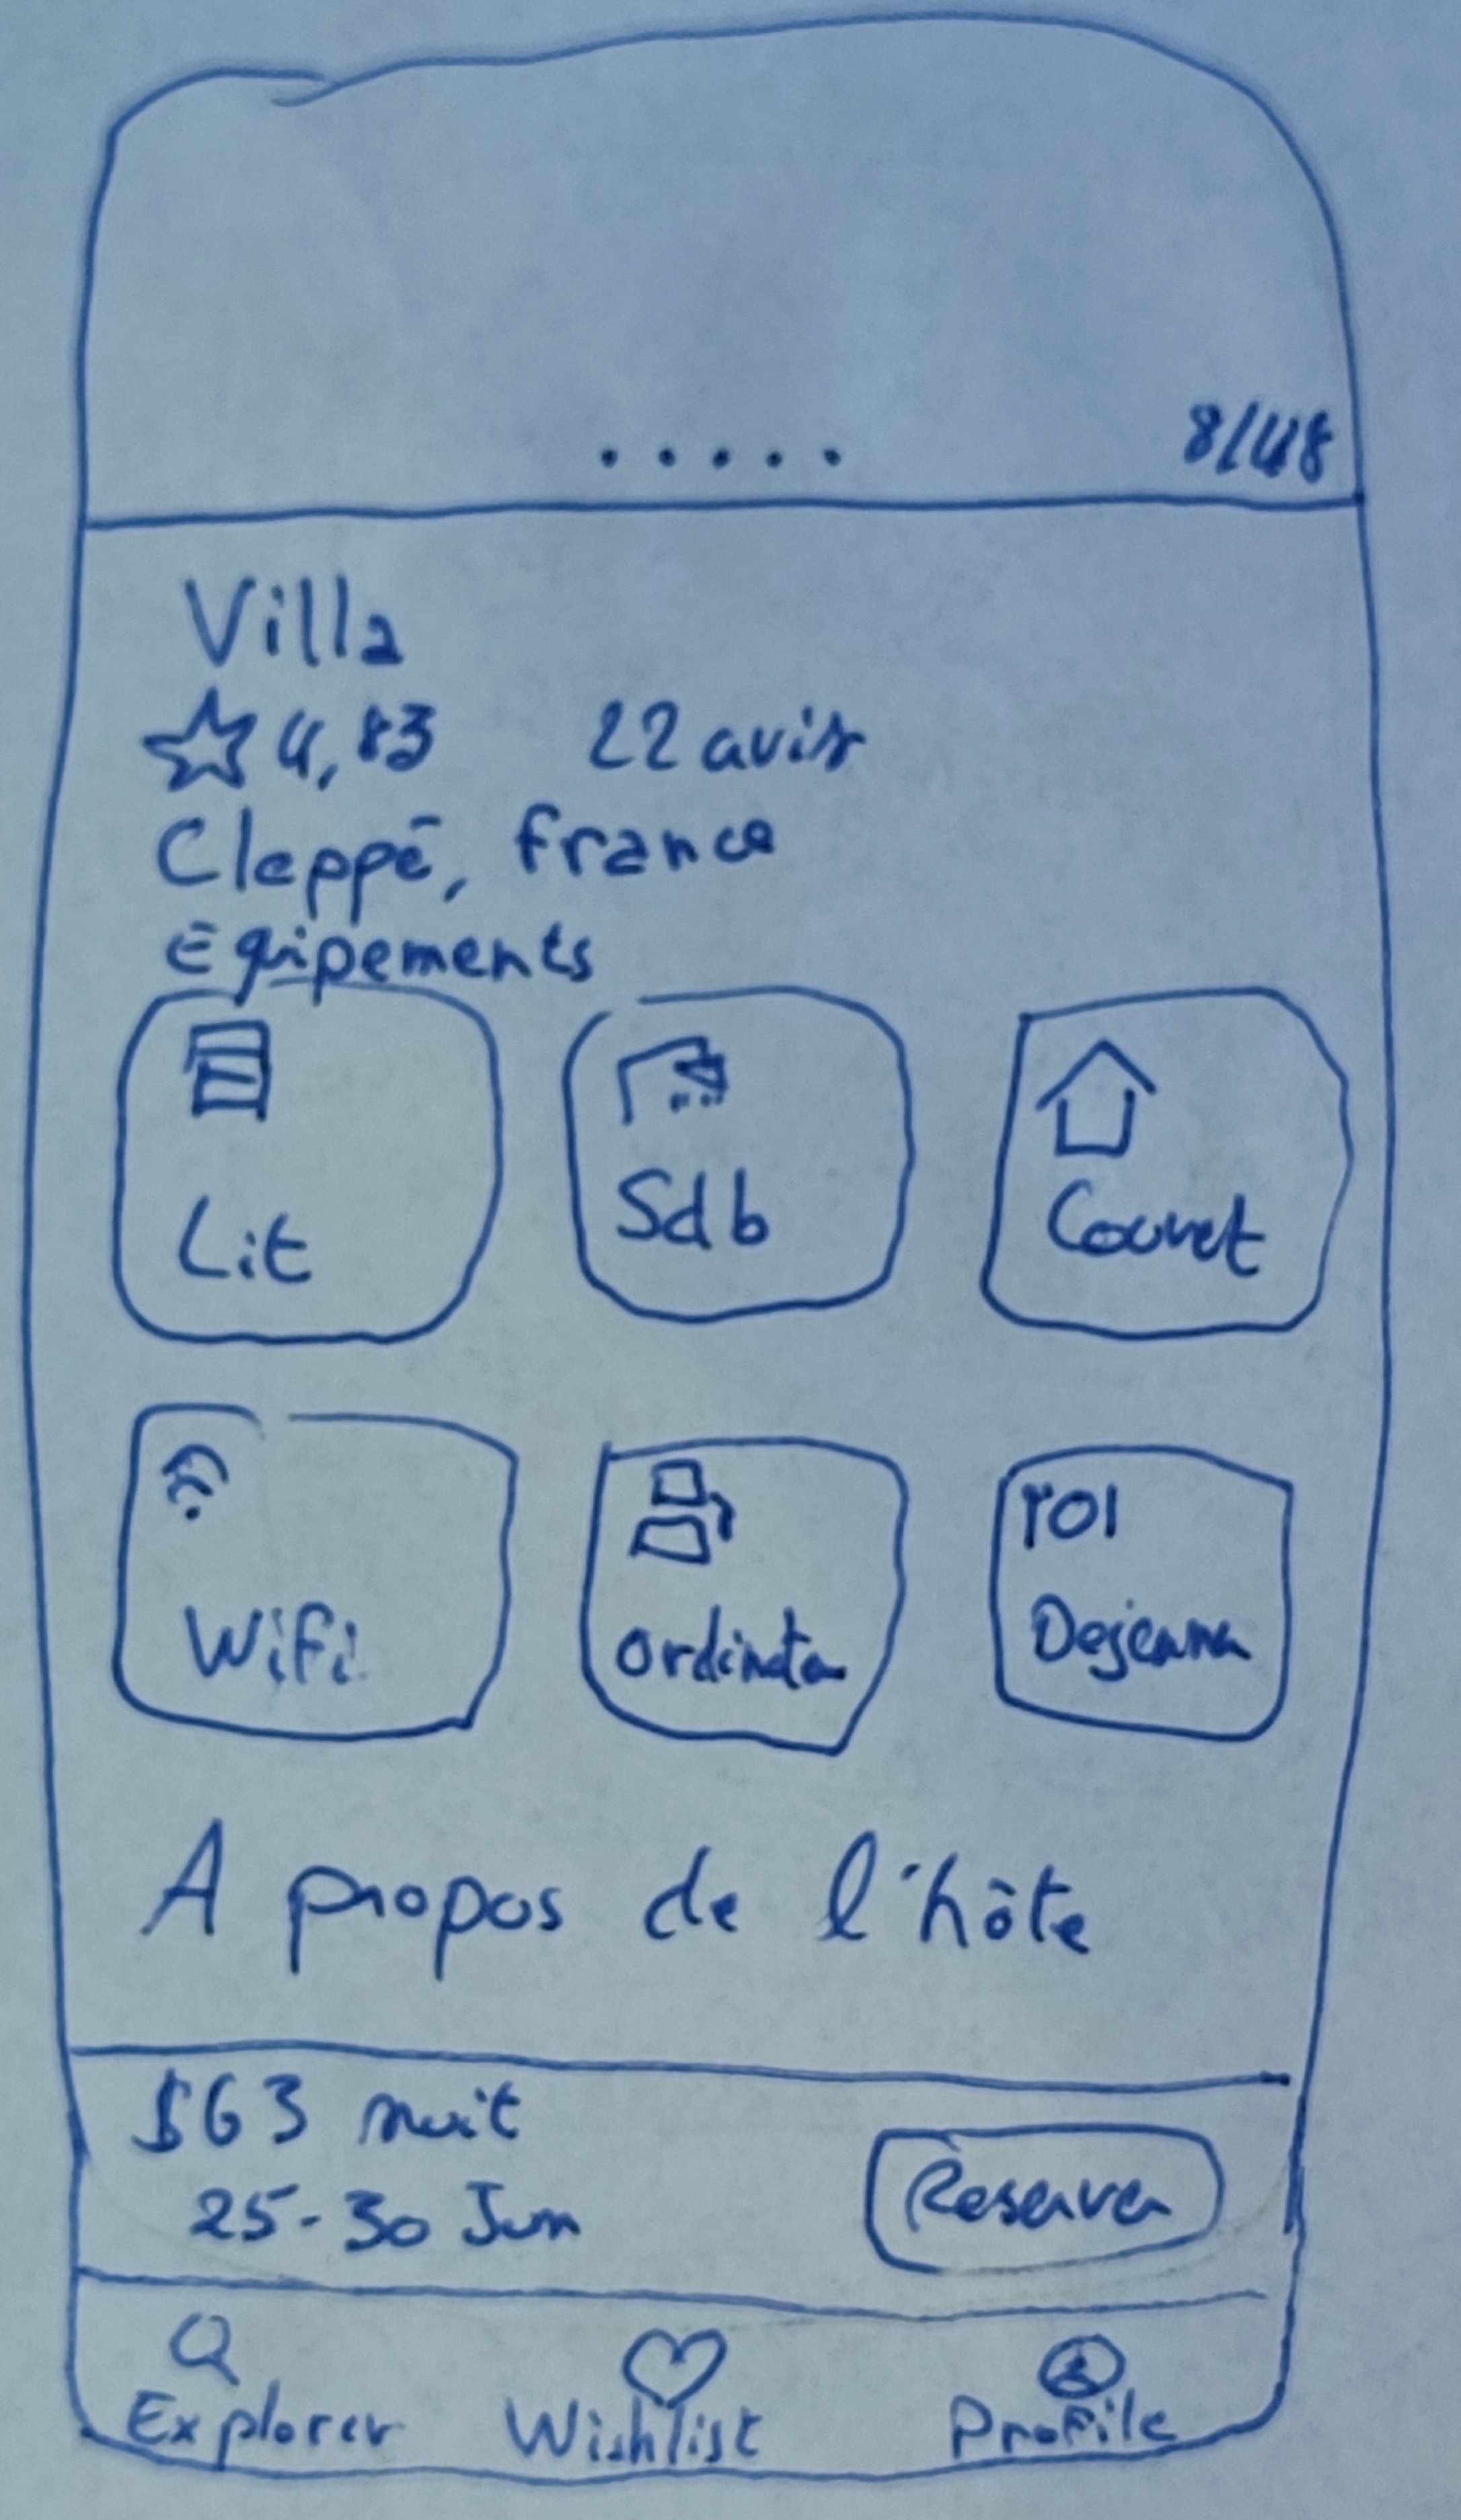 8/48
Villa
4,83 22 avis
Cleppé, France
Equipements
Lit
Sdb
Couvet
Wifi
ordinata
A propos de l'hôte
$63 nuit
25-30 Jun
Reserver
Explorer
Wishlist
Profile